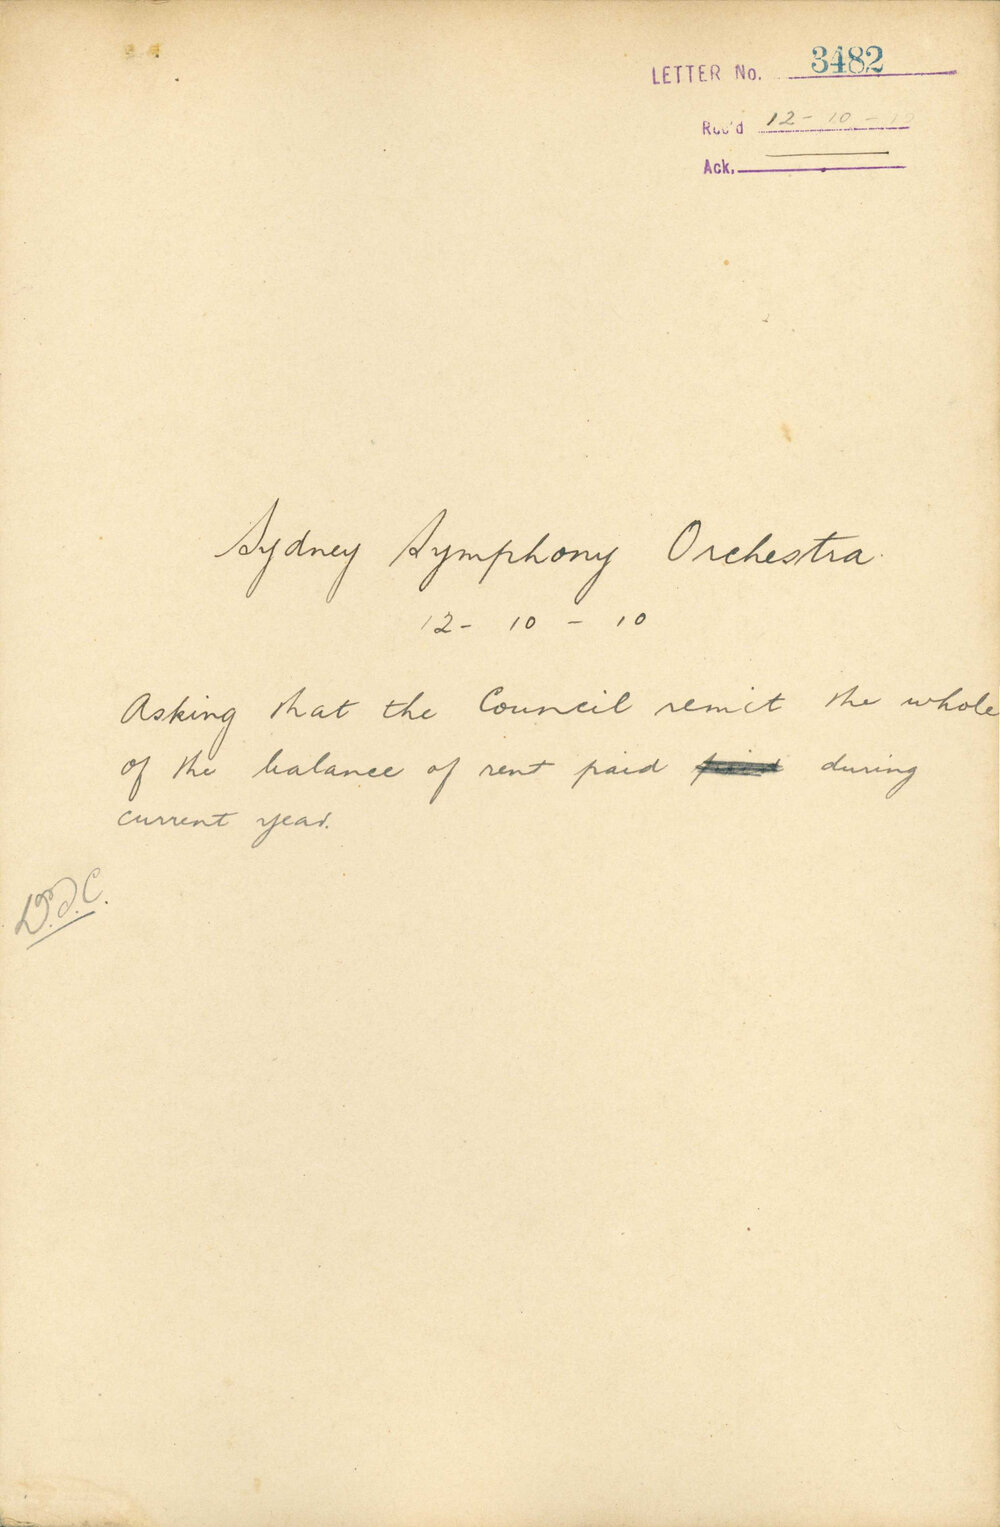 LETTER No. 3482
Rec'd 12-10-10
Ack.
Sydney Symphony Orchestra
12-10-10
Asking that the Council remit the whole
of the balance of rent paid during
current year.